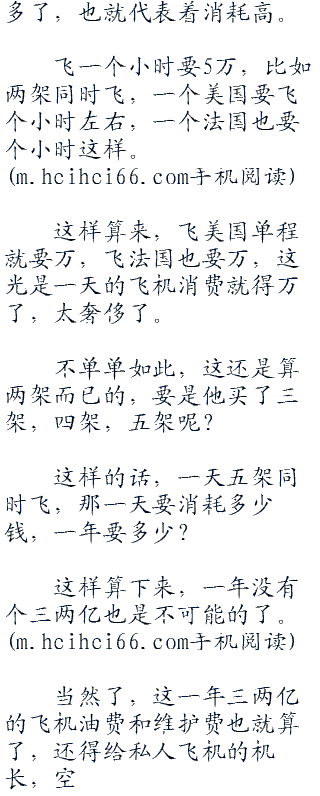 多了，也就代表着消耗高。
飞一个小时要5万，比如
两架同时飞，一个美国要飞
个小时左右，一个法国也要
个小时这样。
(m.hcihci66.com手机阅读)
这样算来，飞美国单程
就要万，飞法国也要万，这
光是一天的飞机消费就得万
了，太奢侈了。
不单单如此，这还是算
两架而已的，要是他买了三
架，四架，五架呢？
这样的话，一天五架同
时飞，那一天要消耗多少
钱，一年要多少？
这样算下来，一年没有
个三两亿也是不可能的了。
(m.hcihci66.com手机阅读)
当然了，这一年三两亿
的飞机油费和维护费也就算
了，还得给私人飞机的机
长，空